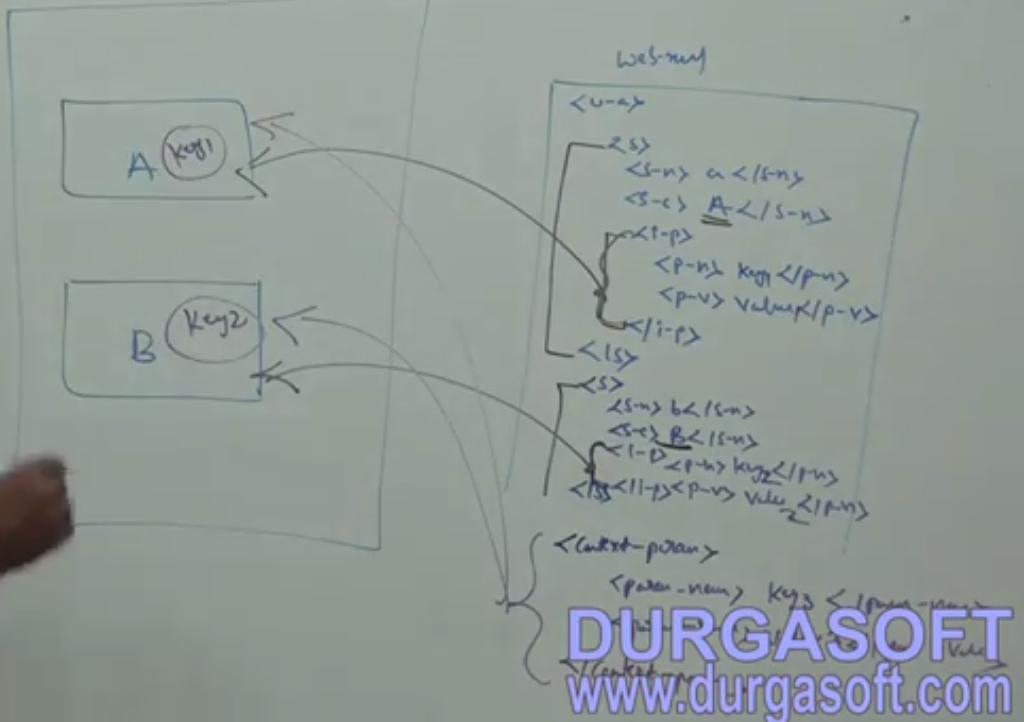 A key1
B key2
web.xml
<w-a>
<s>
<s-n> a </s-n>
<s-c> A </s-n>
<i-p>
<p-n> key1 </p-n>
<p-v> value1 </p-v>
</i-p>
</s>
<s>
<s-n> b </s-n>
<s-c> B </s-n>
<i-p> <p-n> key2 </p-n>
</s> </i-p> <p-v> value2 </p-n>
<context-param>
<param-name> key3 </param-name>
DURGASOFT
www.durgasoft.com